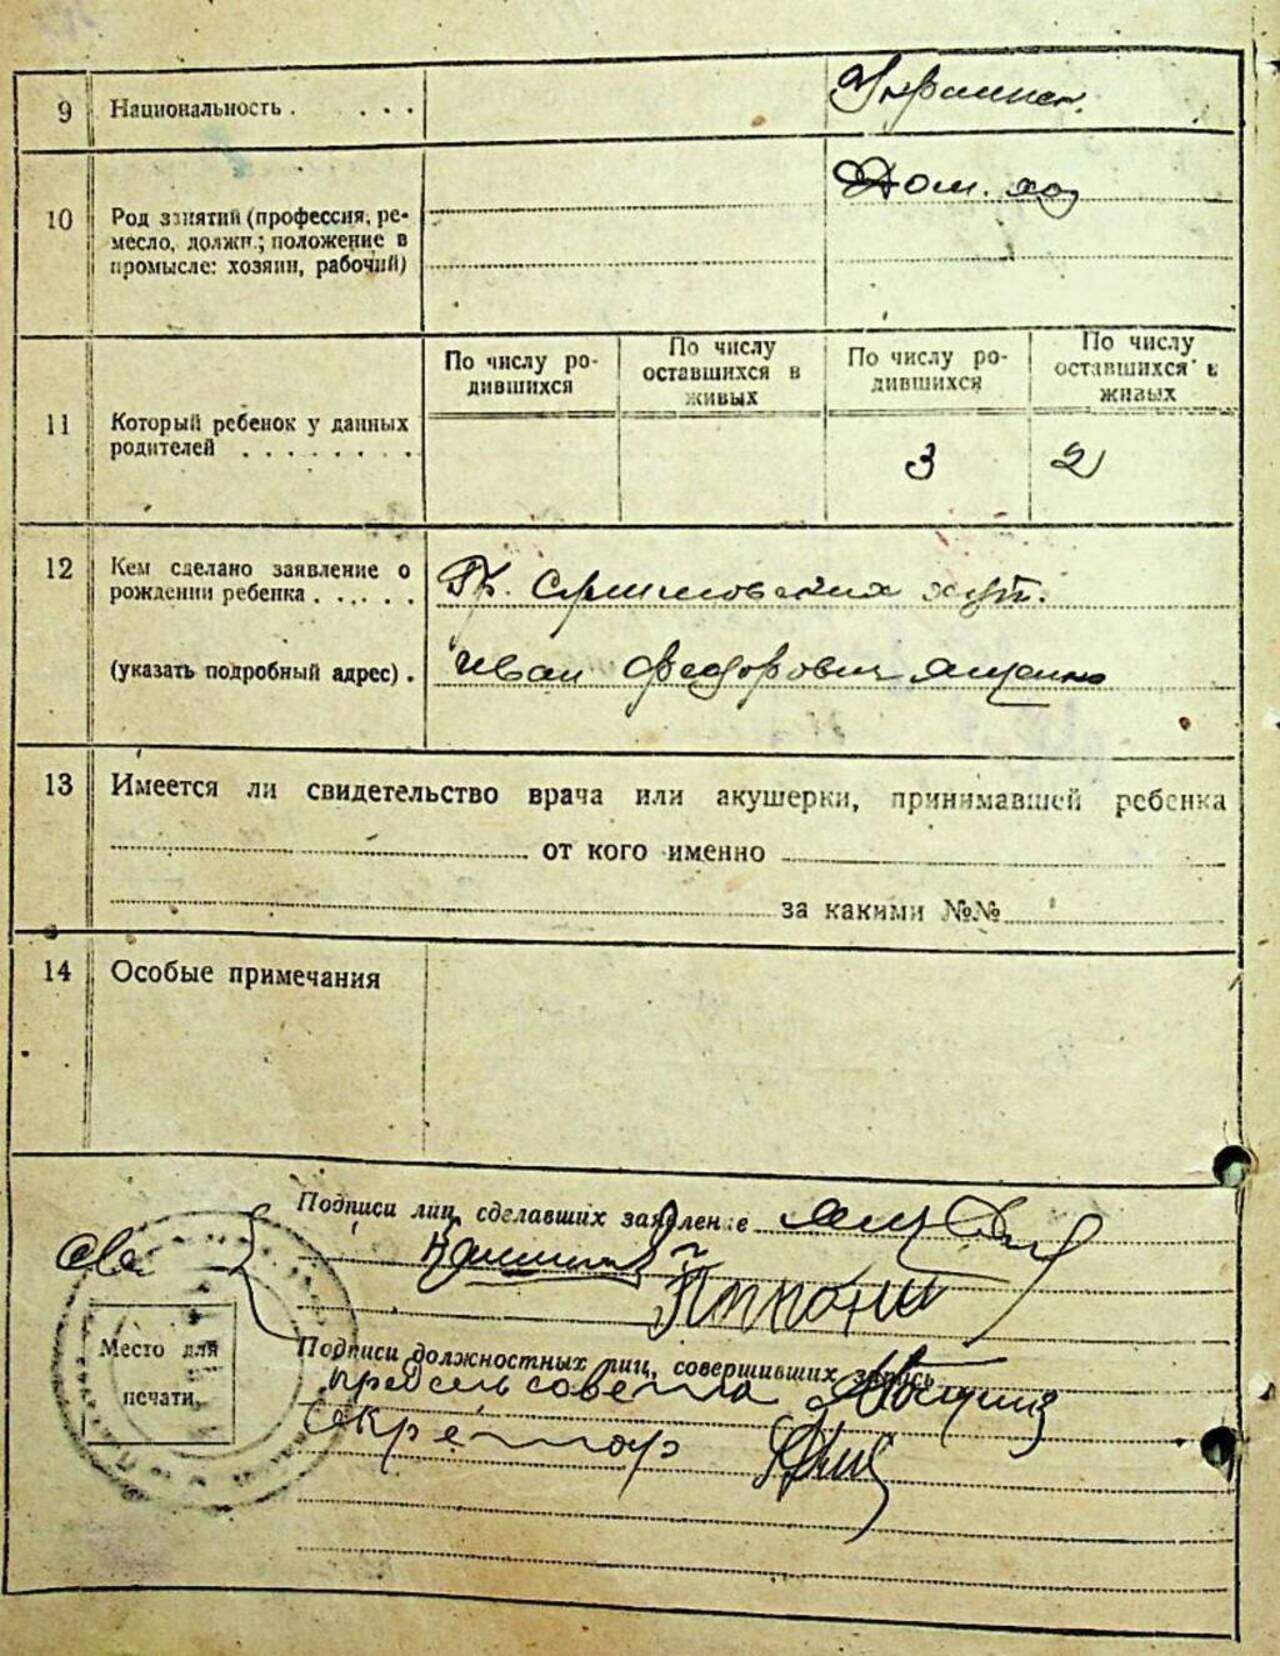 9 Национальность . . . . . Украинск.
10 Род занятий (профессия, ре-
месло, должн.; положение в
промысле: хозяин, рабочий)
Дом. хоз
По числу ро-
дившихся
По числу
оставшихся в
живых
По числу ро-
дившихся
По числу
оставшихся в
живых
11 Который ребенок у данных
родителей . . . . . . . .
3 2
12 Кем сделано заявление о
рождении ребенка . . . . .
(указать подробный адрес) .
Гр. хут.
Иван Федорович Ященко
13 Имеется ли свидетельство врача или акушерки, принимавшей ребенка
от кого именно
за какими №№
14 Особые примечания
Подписи лиц, сделавших заявление
Место для
печати,
Подписи должностных лиц, совершивших запись
пред сельсовета
Секретарь